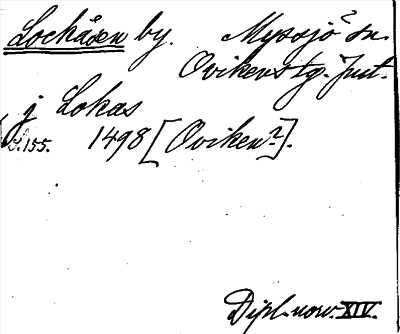 Lockåsen by. Myssjö? sn.
Ovikens tg. Jmt.
j Lokas
S. 155. 1498 [Oviken?].
Dipl. norv. XIV.